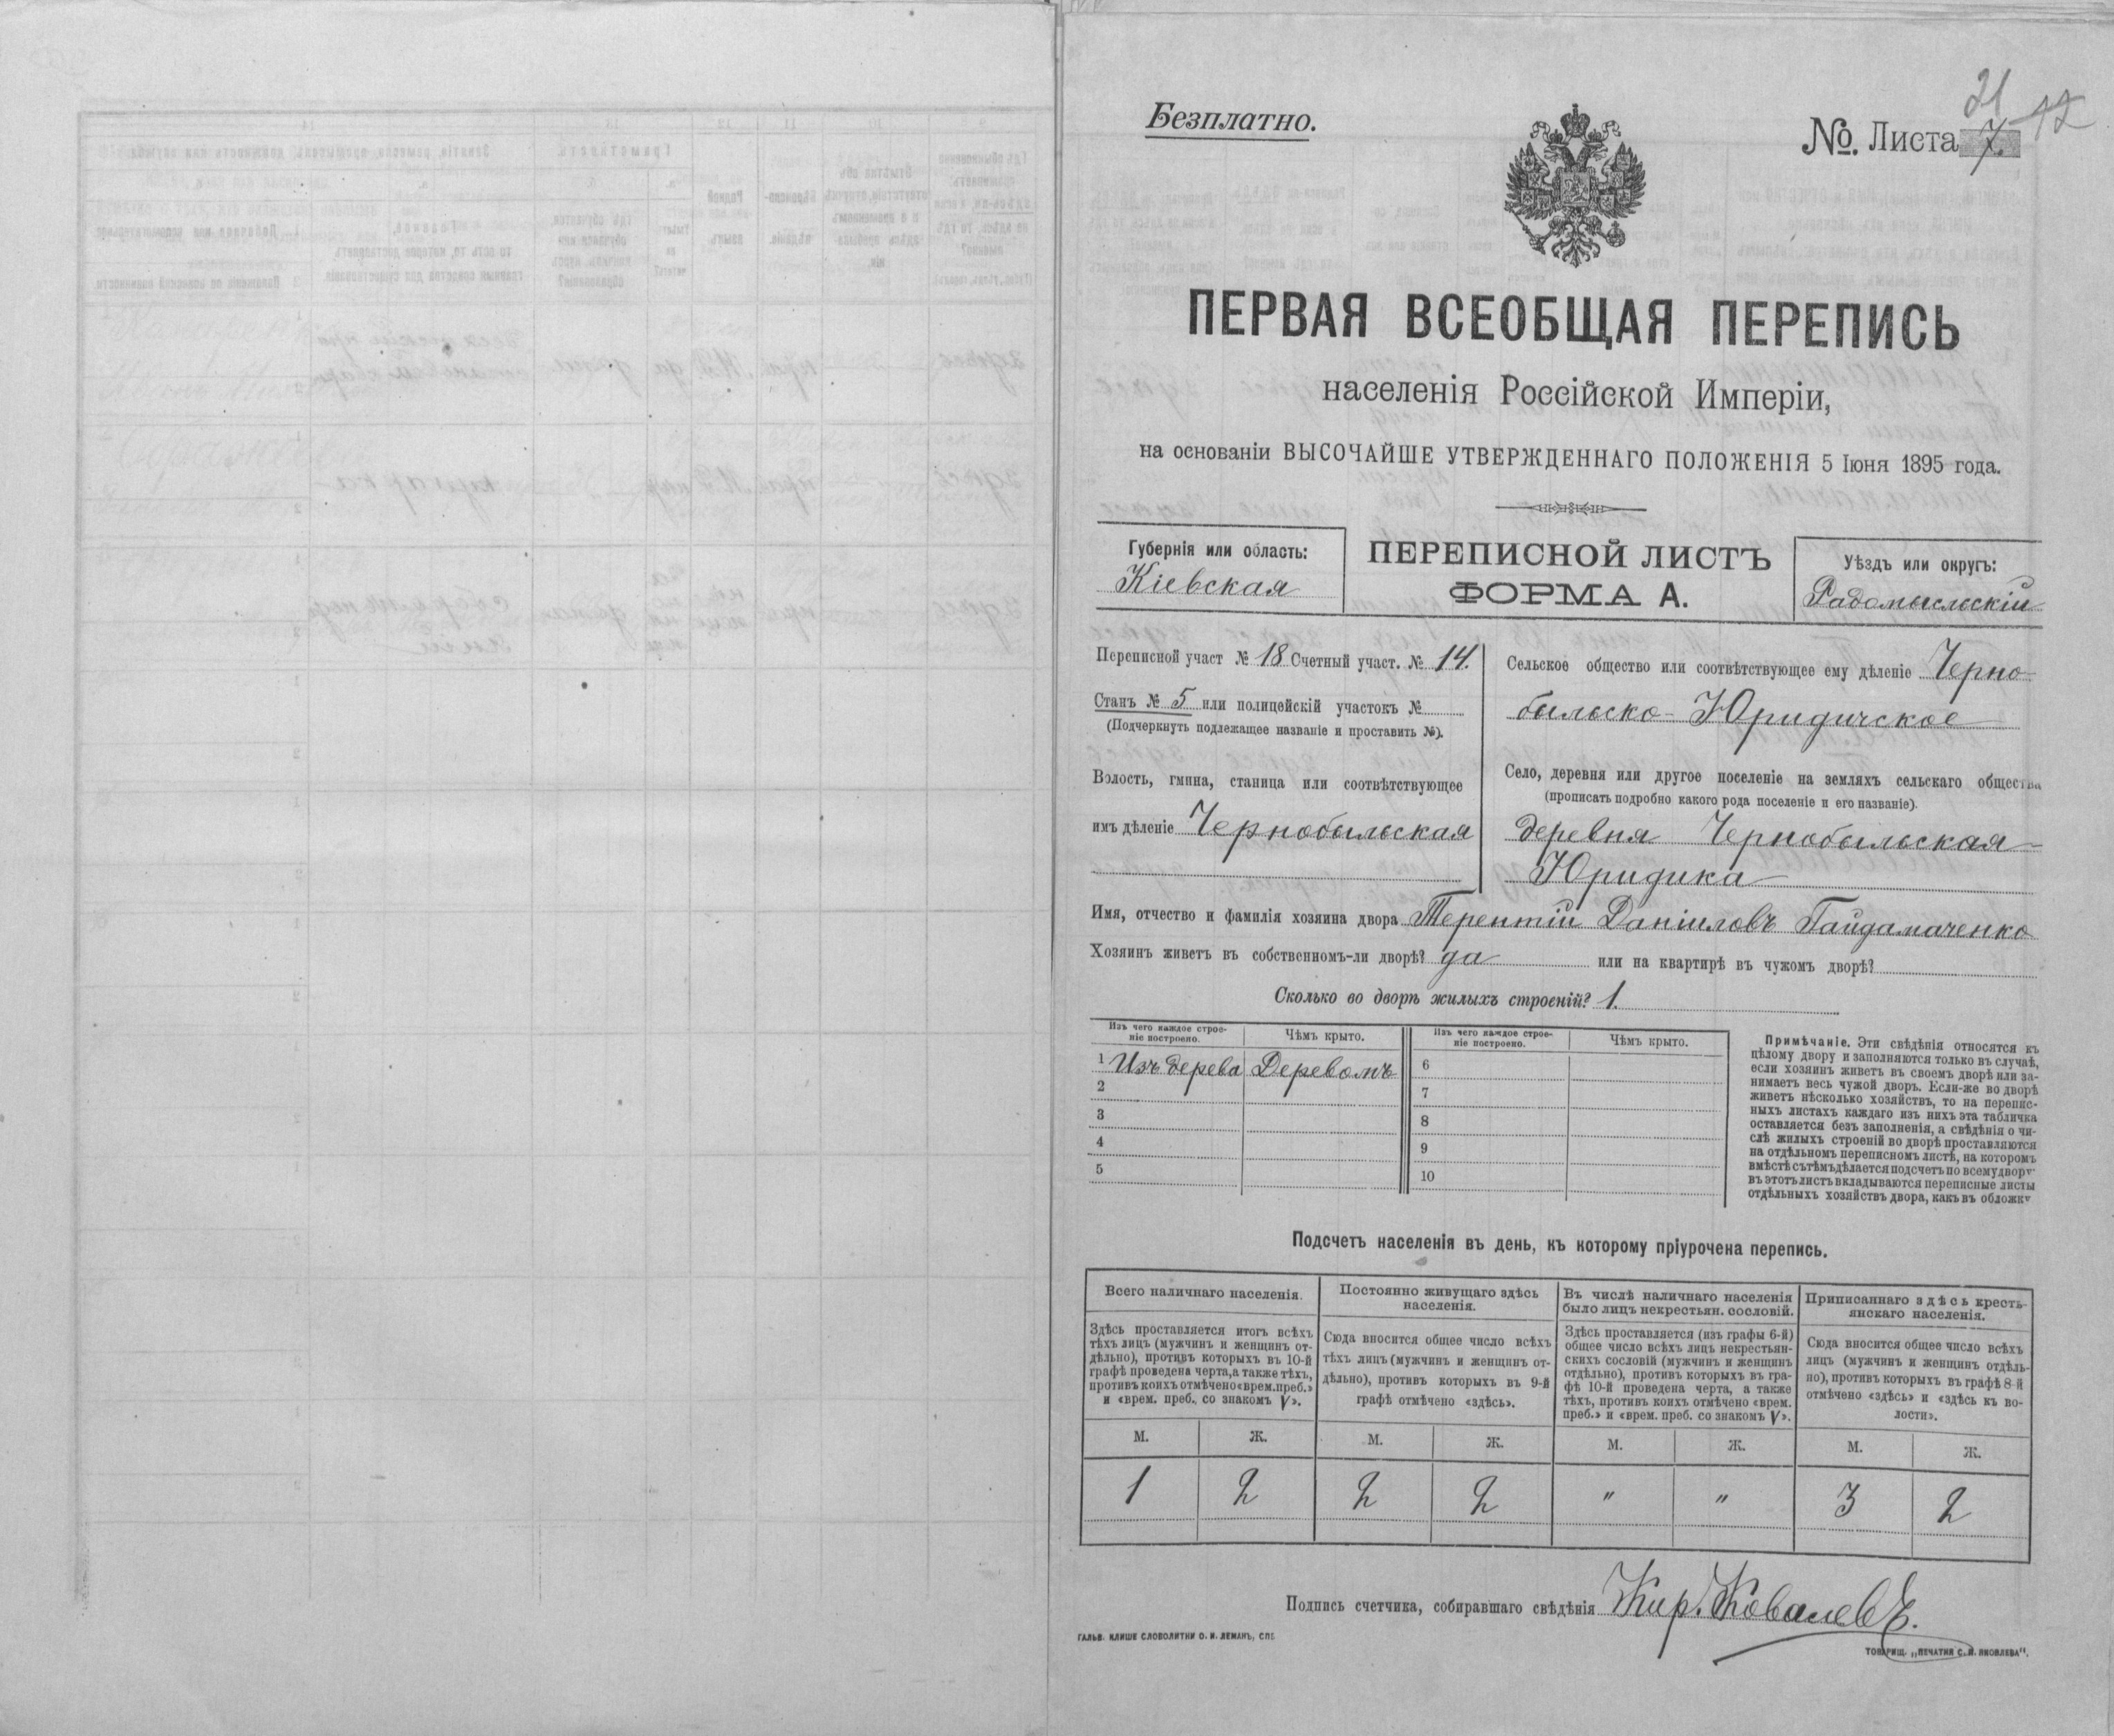 Безплатно.
21
12
№. Листа 7.
ПЕРВАЯ ВСЕОБЩАЯ ПЕРЕПИСЬ
населенія Россійской Имперіи,
на основаніи ВЫСОЧАЙШЕ УТВЕРЖДЕННАГО ПОЛОЖЕНІЯ 5 Іюня 1895 года.
Губернія или область:
Кіевская
ПЕРЕПИСНОЙ ЛИСТЪ
ФОРМА А.
Уѣздъ или округъ:
Радомысльскій
Переписной участ № 18 Счетный участ. № 14.
Станъ № 5 или полицейскій участокъ №
(Подчеркнуть подлежащее названіе и проставить №).
Волость, гмина, станица или соотвѣтствующее
имъ дѣленіе Чернобыльская
Сельское общество или соотвѣтствующее ему дѣленіе Черно-
быльско-Юридичское
Село, деревня или другое поселеніе на земляхъ сельскаго общества
(прописать подробно какого рода поселеніе и его названіе).
деревня Чернобыльская-
Юридика
Имя, отчество и фамилія хозяина двора Терентій Даніиловъ Гайдамаченко
Хозяинъ живетъ въ собственномъ-ли дворѣ? да или на квартирѣ въ чужомъ дворѣ?
Сколько во дворѣ жилыхъ строеній? 1.
Изъ чего каждое строе-
ніе построено.
Чѣмъ крыто.
Изъ чего каждое строе-
ніе построено.
Чѣмъ крыто.
1 Изъ дерева Деревомъ 6
2 7
3 8
4 9
5 10
Примѣчаніе. Эти свѣдѣнія относятся къ
цѣлому двору и заполняются только въ случаѣ,
если хозяинъ живетъ въ своемъ дворѣ или за-
нимаетъ весь чужой дворъ. Если-же во дворѣ
живетъ нѣсколько хозяйствъ, то на перепис-
ныхъ листахъ каждаго изъ нихъ эта табличка
оставляется безъ заполненія, а свѣдѣнія о чи-
слѣ жилыхъ строеній во дворѣ проставляются
на отдѣльномъ переписномъ листѣ, на которомъ
вмѣстѣ съ тѣмъ дѣлается подсчетъ по всему двору:
въ этотъ листъ вкладываются переписные листы
отдѣльныхъ хозяйствъ двора, какъ въ обложку
Подсчетъ населенія въ день, къ которому пріурочена перепись.
Всего наличнаго населенія.
Здѣсь проставляется итогъ всѣхъ
тѣхъ лицъ (мужчинъ и женщинъ от-
дѣльно), противъ которыхъ въ 10-й
графѣ проведена черта, а также тѣхъ,
противъ коихъ отмѣчено «врем. преб.»
и «врем. преб. со знакомъ V».
Постоянно живущаго здѣсь
населенія.
Сюда вносится общее число всѣхъ
тѣхъ лицъ (мужчинъ и женщинъ от-
дѣльно), противъ которыхъ въ 9-й
графѣ отмѣчено «здѣсь».
Въ числѣ наличнаго населенія
было лицъ некрестьян. сословій.
Здѣсь проставляется (изъ графы 6-й)
общее число всѣхъ лицъ некрестьян-
скихъ сословій (мужчинъ и женщинъ
отдѣльно), противъ которыхъ въ гра-
фѣ 10-й проведена черта, а также
тѣхъ, противъ коихъ отмѣчено «врем.
преб.» и «врем. преб. со знакомъ V».
Приписаннаго здѣсь кресть-
янскаго населенія.
Сюда вносится общее число всѣхъ
лицъ (мужчинъ и женщинъ отдѣль-
но), противъ которыхъ въ графѣ 8-й
отмѣчено «здѣсь» и «здѣсь къ во-
лости».
М. Ж. М. Ж. М. Ж. М. Ж.
1 2 2 2 " " 3 2
Подпись счетчика, собиравшаго свѣдѣнія Кир. Ковалевъ.
ГАЛЬВ. КЛИШЕ СЛОВОЛИТНИ О. И. ЛЕМАНЪ, СПБ
ТОВАРИЩ. „ПЕЧАТНЯ С. П. ЯКОВЛЕВА".